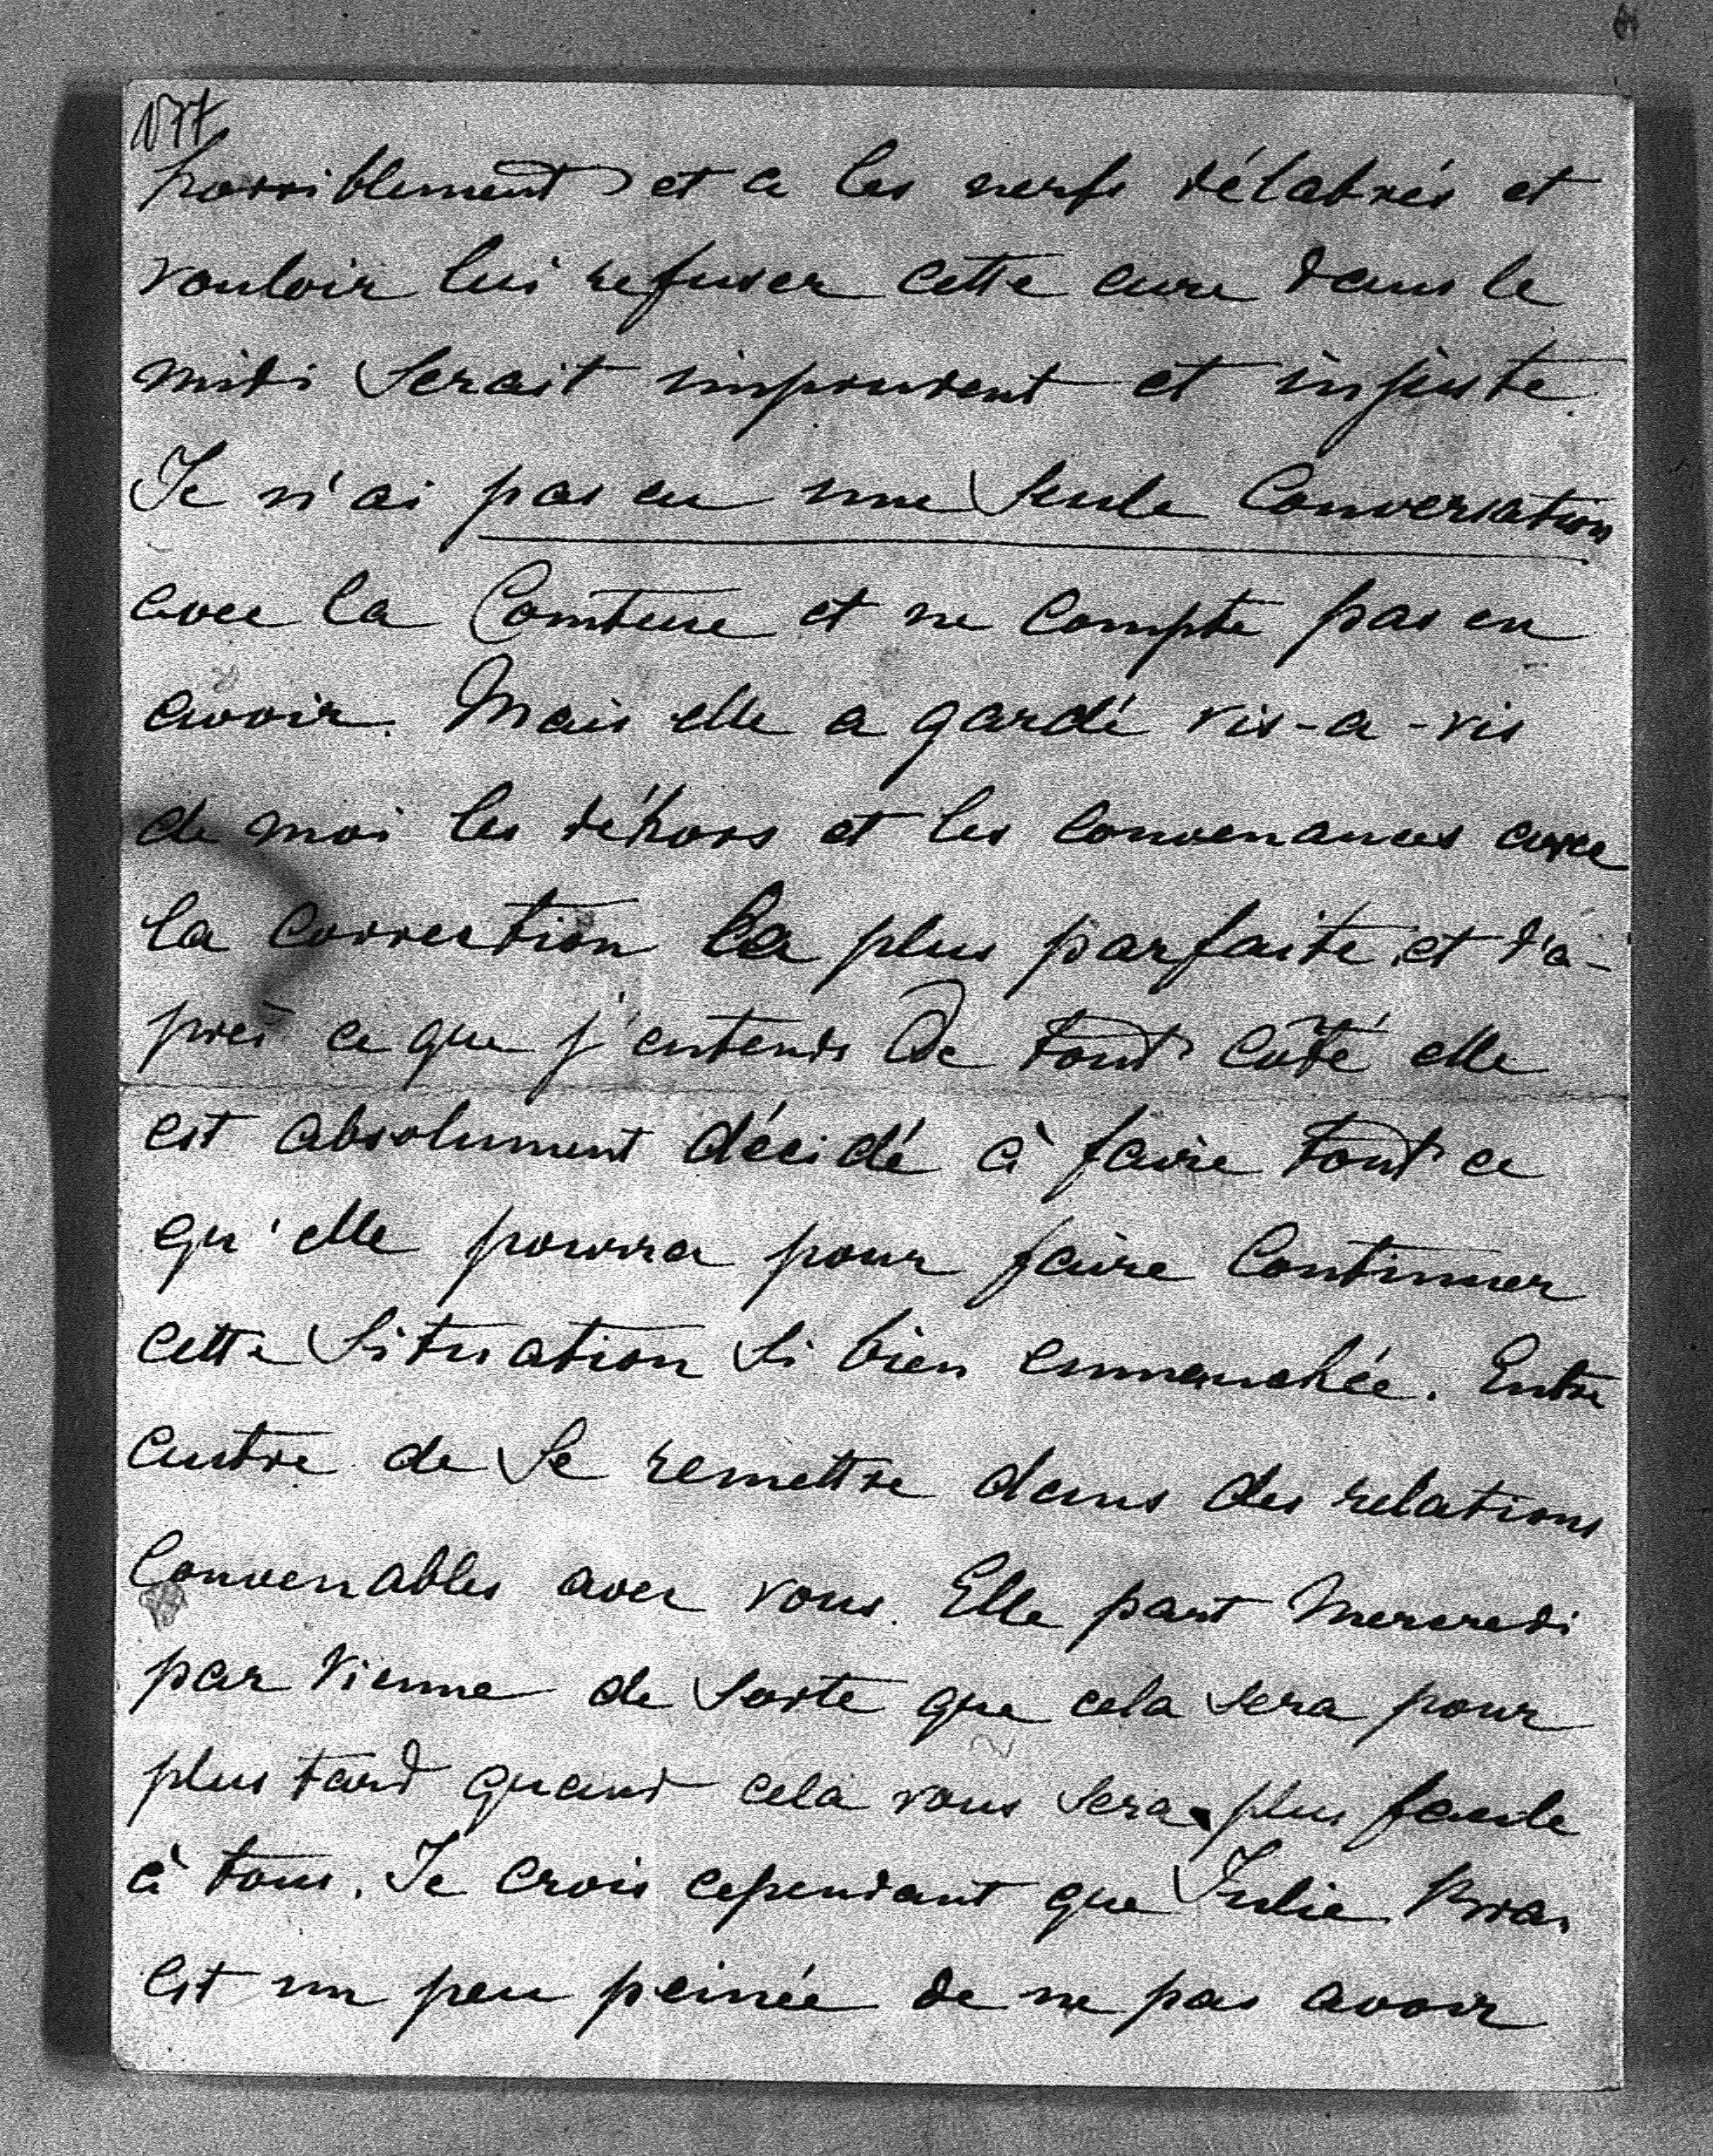 177
horriblement et a les nerfs délabrés et
vouloir lui refuser cette cure dans le
midi serait imprudent et injuste.
Je n'ai pas eu une seule conversation
avec la Comtesse et ne compte pas en
avoir. Mais elle a gardé vis-a-vis
de moi les déhors et les convenances avec
la correction la plus parfaite et d'a-
près ce que j'entends de tout côté elle
est absolument décidé à faire tout ce
qu'elle pourra pour faire continuer
cette situation si bien emmanchée. Entre
autre de se remettre dans des relations
convenables avec vous. Elle part Mercredi
par Vienne de sorte que cela sera pour
plus tard quand cela vous sera plus facile
à tous. Je crois cependant que Julie
est un peu peinée de ne pas avoir